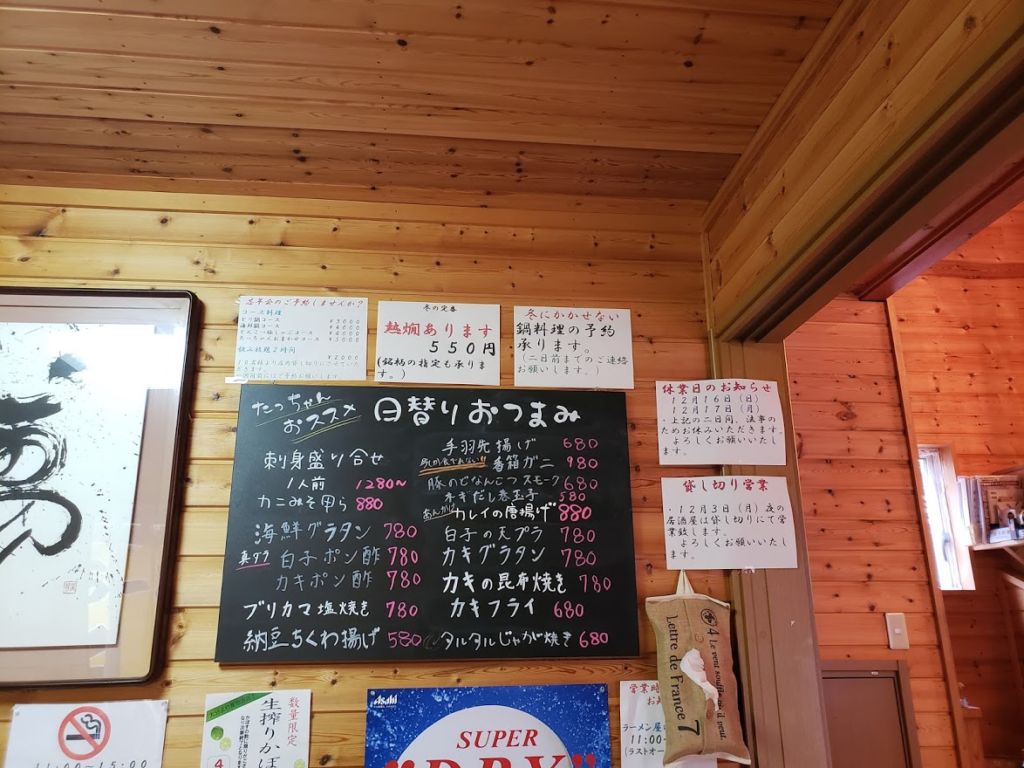 忘年会のご予約しませんか?
コース料理
飲み放題2時間
¥2000
冬の定番
熱燗あります
550円
(銘柄の指定も承ります。)
冬にかかせない
鍋料理の予約
承ります。
(二日前までのご連絡
お願いします。)
休業日のお知らせ
12月16日(日)
12月17日(月)
・上記の二日間、法事の
ためお休みいただきます。
よろしくお願いいたし
ます。
貸し切り営業
・12月3日(月)夜の
居酒屋は貸し切りにて営
業致します。
よろしくお願いいたし
ます。
たっちゃん
おススメ
日替りおつまみ
刺身盛り合せ
1人前 1280~
カニみそ甲ら 880
海鮮グラタン 780
真ダラ 白子ポン酢 780
カキポン酢 780
ブリカマ塩焼き 780
納豆ちくわ揚げ 580
手羽先揚げ 680
香箱ガニ 980
豚のどなんこつスモーク 680
ネギだし巻玉子 580
あんかけ カレイの唐揚げ 880
白子の天プラ 780
カキグラタン 780
カキの昆布焼き 780
カキフライ 680
タルタルじゃが焼き 680
11:00~15:00
数量限定
生搾りかぼ
4
Asahi
SUPER
"DRY"
営業時
お知
ラーメン屋
11:00~
(ラストオー
4 Le vent souffle
Lettre de France
7